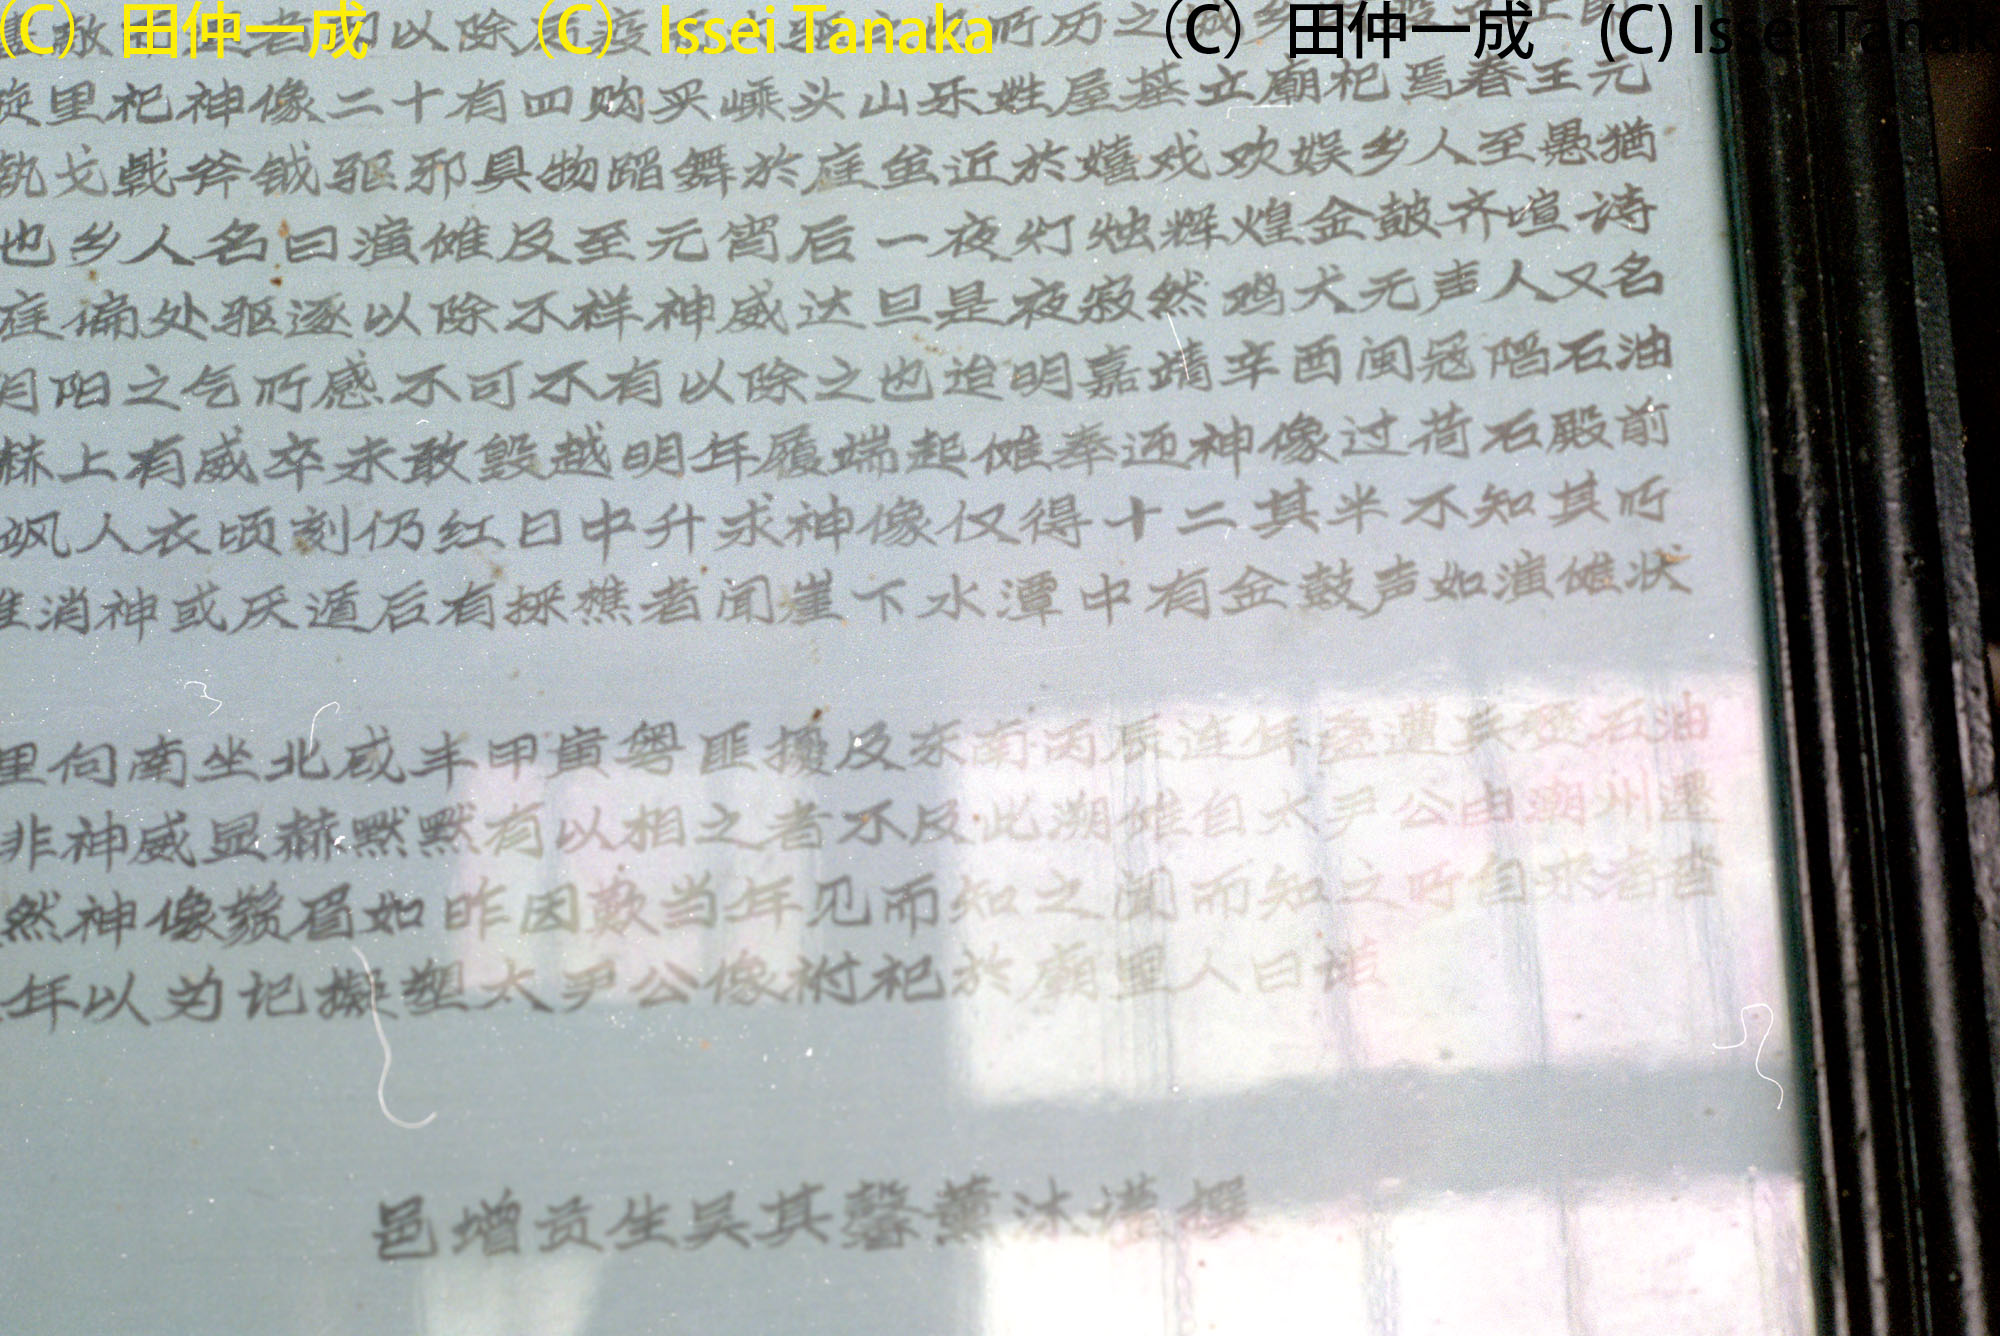 (C) 田仲一成 (C) Issei Tanaka (C) 田仲一成 (C) Issei Tanaka
者 以除 疫 所历之 乡
旋里祀神像二十有四购买嵊头山乐姓屋基立廟祀焉春王元
執戈戟斧钺驱邪具物蹈舞於庭虽近於嬉戏欢娱乡人至愚犹
也乡人名曰演傩及至元宵后一夜灯烛辉煌金鼓齐喧诗
庭偏处驱逐以除不祥神威达旦是夜寂然鸡犬无声人又名
阴阳之气所感不可不有以除之也迨明嘉靖辛酉闽寇陷石油
赫上有威卒未敢毁越明年履端起傩奉迊神像过荷石殿前
飒人衣顷刻仍红日中升求神像仅得十二其半不知其所
消神或厌遁后有採樵者闻崖下水潭中有金鼓声如演傩状
里向南坐北咸丰甲寅粤匪擾及东南丙辰连年叠遭兵 石油
非神威显赫默默有以相之者不及此溯傩自太尹公由潮州遷
然神像鬚眉如昨因歎当年见而知之闻而知之所自来者杳
年以为记擬塑太尹公像附祀於廟里人曰诺
邑增贡生吴其馨薰沐谨撰